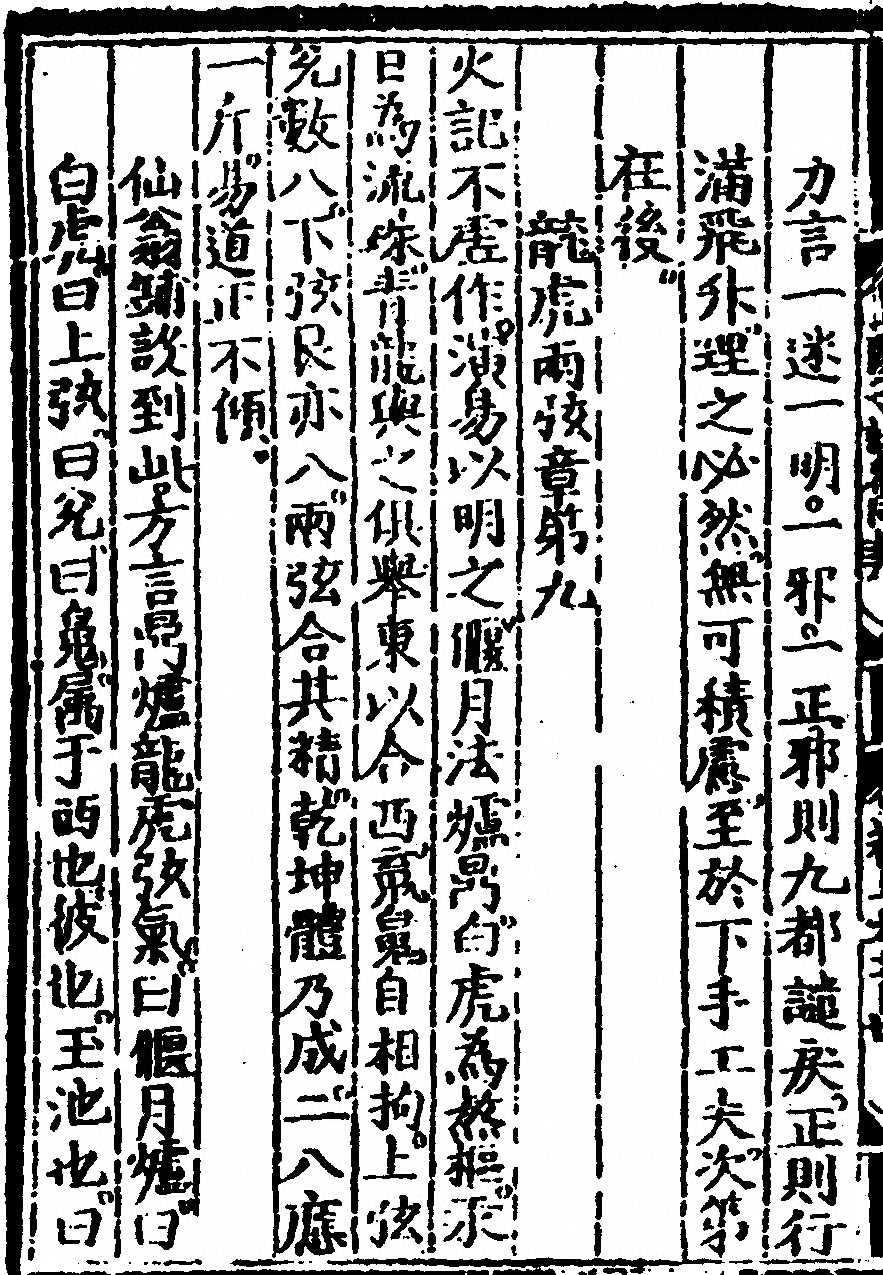 力言一迷一明一邪一正邪則九都譴戾正則行
滿飛升理之必然無可積慮至於下手工夫次第
在後
龍虎兩弦章第九
火記不虛作演易以明之偃月法爐鼎白虎為熬樞汞
日為流珠青龍與之俱舉東以合西魂魄自相拘上弦
兌數八下弦艮亦八兩弦合其精乾坤體乃成二八應
一斤易道正不傾
仙翁鋪說到此方言鼎爐龍虎弦氣曰偃月爐曰
白虎曰上弦曰兌曰魄属于西也彼也玉池也曰